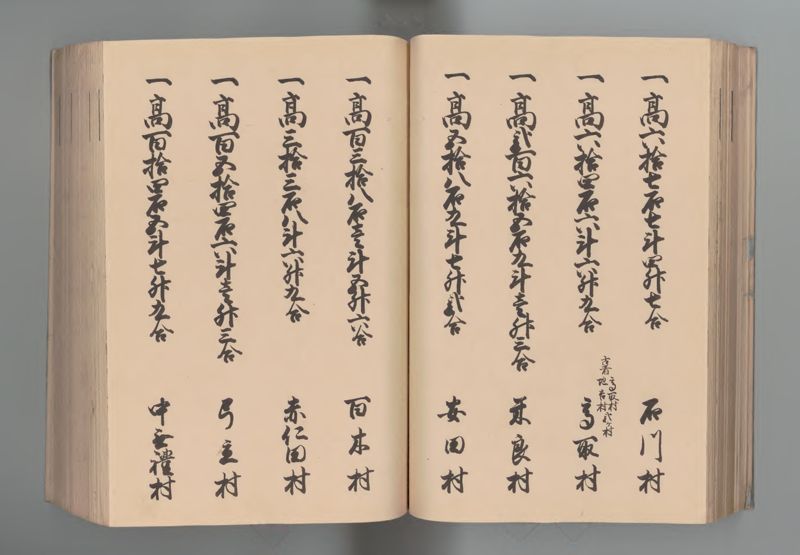 一高六拾七石七斗四升七合 石川村
一高六拾四石六斗六升九合 高取村
一高弐百六拾五石九斗壱升三合 良村
一高五拾八石九斗七升弐合 安田村
一高百三拾八石壱斗五升六合 百木村
一高三拾三石八斗六升九合 赤仁田村
一高百五拾四石六斗壱升三合 弓立村
一高百拾四石五斗七升九合 中無礼村